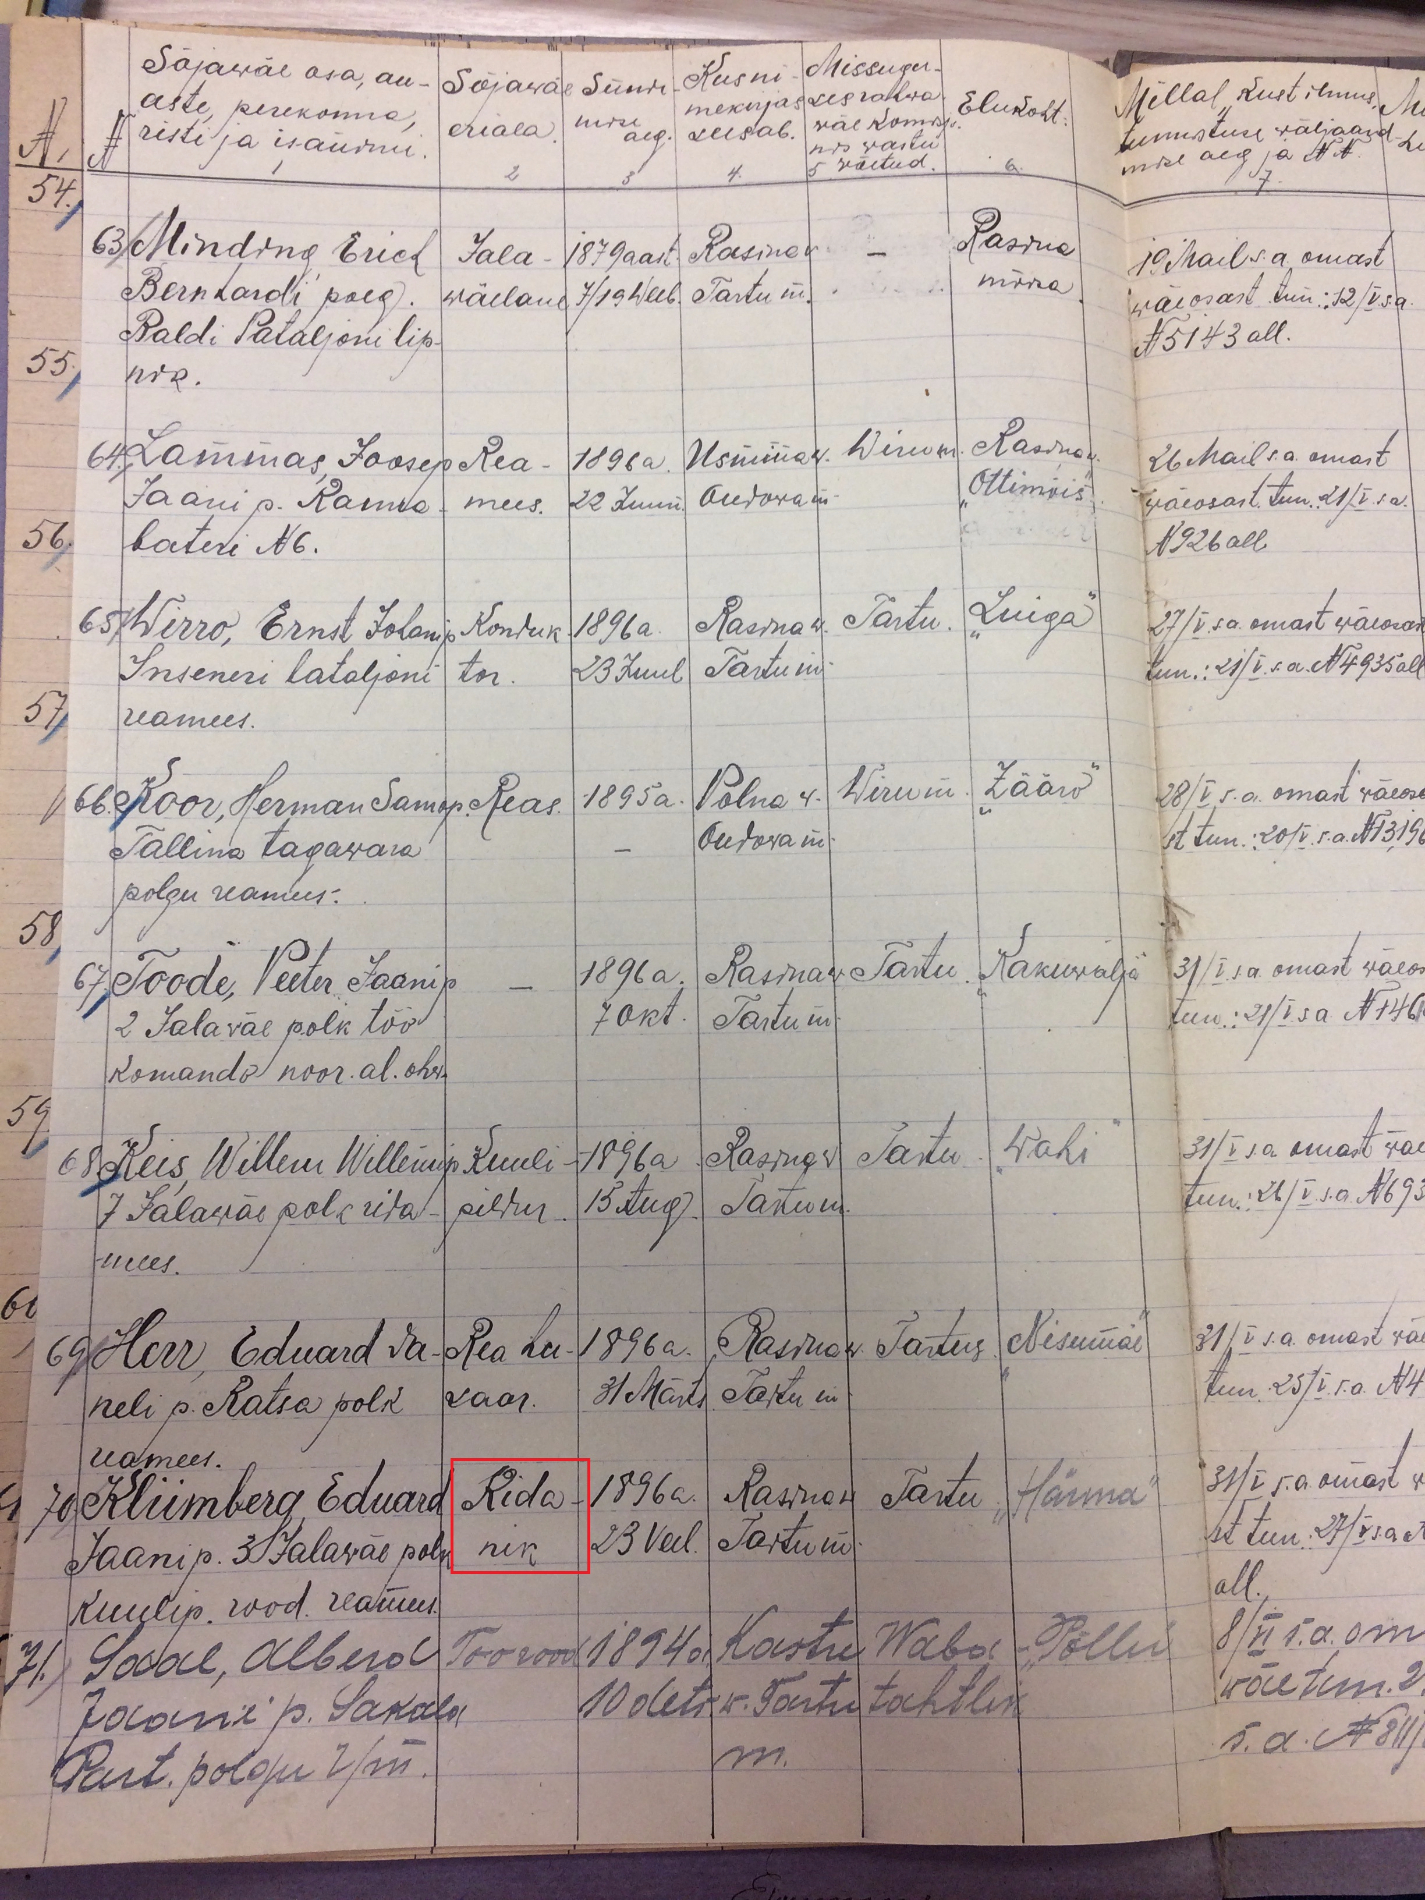 Sõjawäe osa, au-
aste, perekonna,
risti ja isanimi.
1
Sõjawäe
eriala.
2
Sünni-
mise
aeg.
3
Kus ni-
mekirjas
seisab.
4.
Missugu-
ses rahwa
wäe komis.
nis wastu
5 wõetud.
Elukoht.
6.
Millal, kust ilmus,
tunnistuse wäljaand-
mise aeg ja № №.
7.
№
№
54.
55.
56.
57.
58.
59.
60
63. Minding, Erich
Bernhardi poeg.
Baldi Pataljoni lip-
nik.
Jala-
wäelane
1879 aast.
7/19 Weeb.
Rasina w.
Tartu m.
—
Rasina
mõisa
19 Mail s.a. omast
wäeosast tun.: 12/V s.a.
№ 5143 all.
64. Lammas, Joosep
Jaani p. Ranna
bateri №6.
Rea-
mees.
1896 a.
22 Juuni.
Oudowa m.
Wiru m.
Rasina w.
„Ottimõis"
26 Mail s.a. omast
wäeosast. tun.: 21/V s.a.
№ 926 all
65. Wirro, Ernst Johani p.
Inseneri bataljoni
reamees.
Konduk-
tor.
1896 a.
23 Juul
Rasina w.
Tartu m.
Tartu.
„Luiga"
27/V. s.a. omast wäeosast
tun.: 21/V. s.a. № 4935 all
66. Koor, Herman Samo p.
Tallina tagawara
polgu reamees.
Reas.
1895 a.
—
Polna w.
Oudowa m.
Wiru m.
„Zäärö"
28/V s.a. omast wäeosa
st tun.: 20/V. s.a. № 13196
67. Toode, Peeter Jaani p
2 Jalawäe polk töö
komando noor. al. ohw.
—
1896 a.
7 Okt.
Rasina w
Tartu m.
Tartu.
„Kakuwälja"
31/V s.a. omast wäeos
tun.: 21/V s.a. № 146
68. Keis, Willem Willemi p
7 Jalawäe polk rida-
mees.
Kuuli-
pildur.
1896 a
15 Aug.
Rasina w
Tartu m.
Tartu.
„Wahi"
31/V s.a. omast wäe
tun.: 26/V s.a. № 693
69. Herr, Eduard Ta-
neli p. Ratsa polk
reamees.
Rea hu-
saar.
1896 a.
31 Märts
Rasina w.
Tartu m.
Tartus.
„Nisumäe"
31/V s.a. omast wäe
tun. 25/V. s.a. № 4
70. Klümberg, Eduard
Jaani p. 3 Jalawäe polk
Kuulip. rood. reamees.
Rida-
nik
1896 a.
23 Veeb.
Rasina w
Tartu m.
Tartu
„Härma"
31/V s.a. omast w
st tun. 27/V s.a. №
all.
71. Saal, Alberd
Jaani p. Sakala
Part. polgu 7/III.
Töörood
1894 a
10 dets
Kastre
w. Tartu
m.
Waba
tahtlik
„Põllu
8/VI s.a. om
wäe tun. 2.
s.a. № 811/